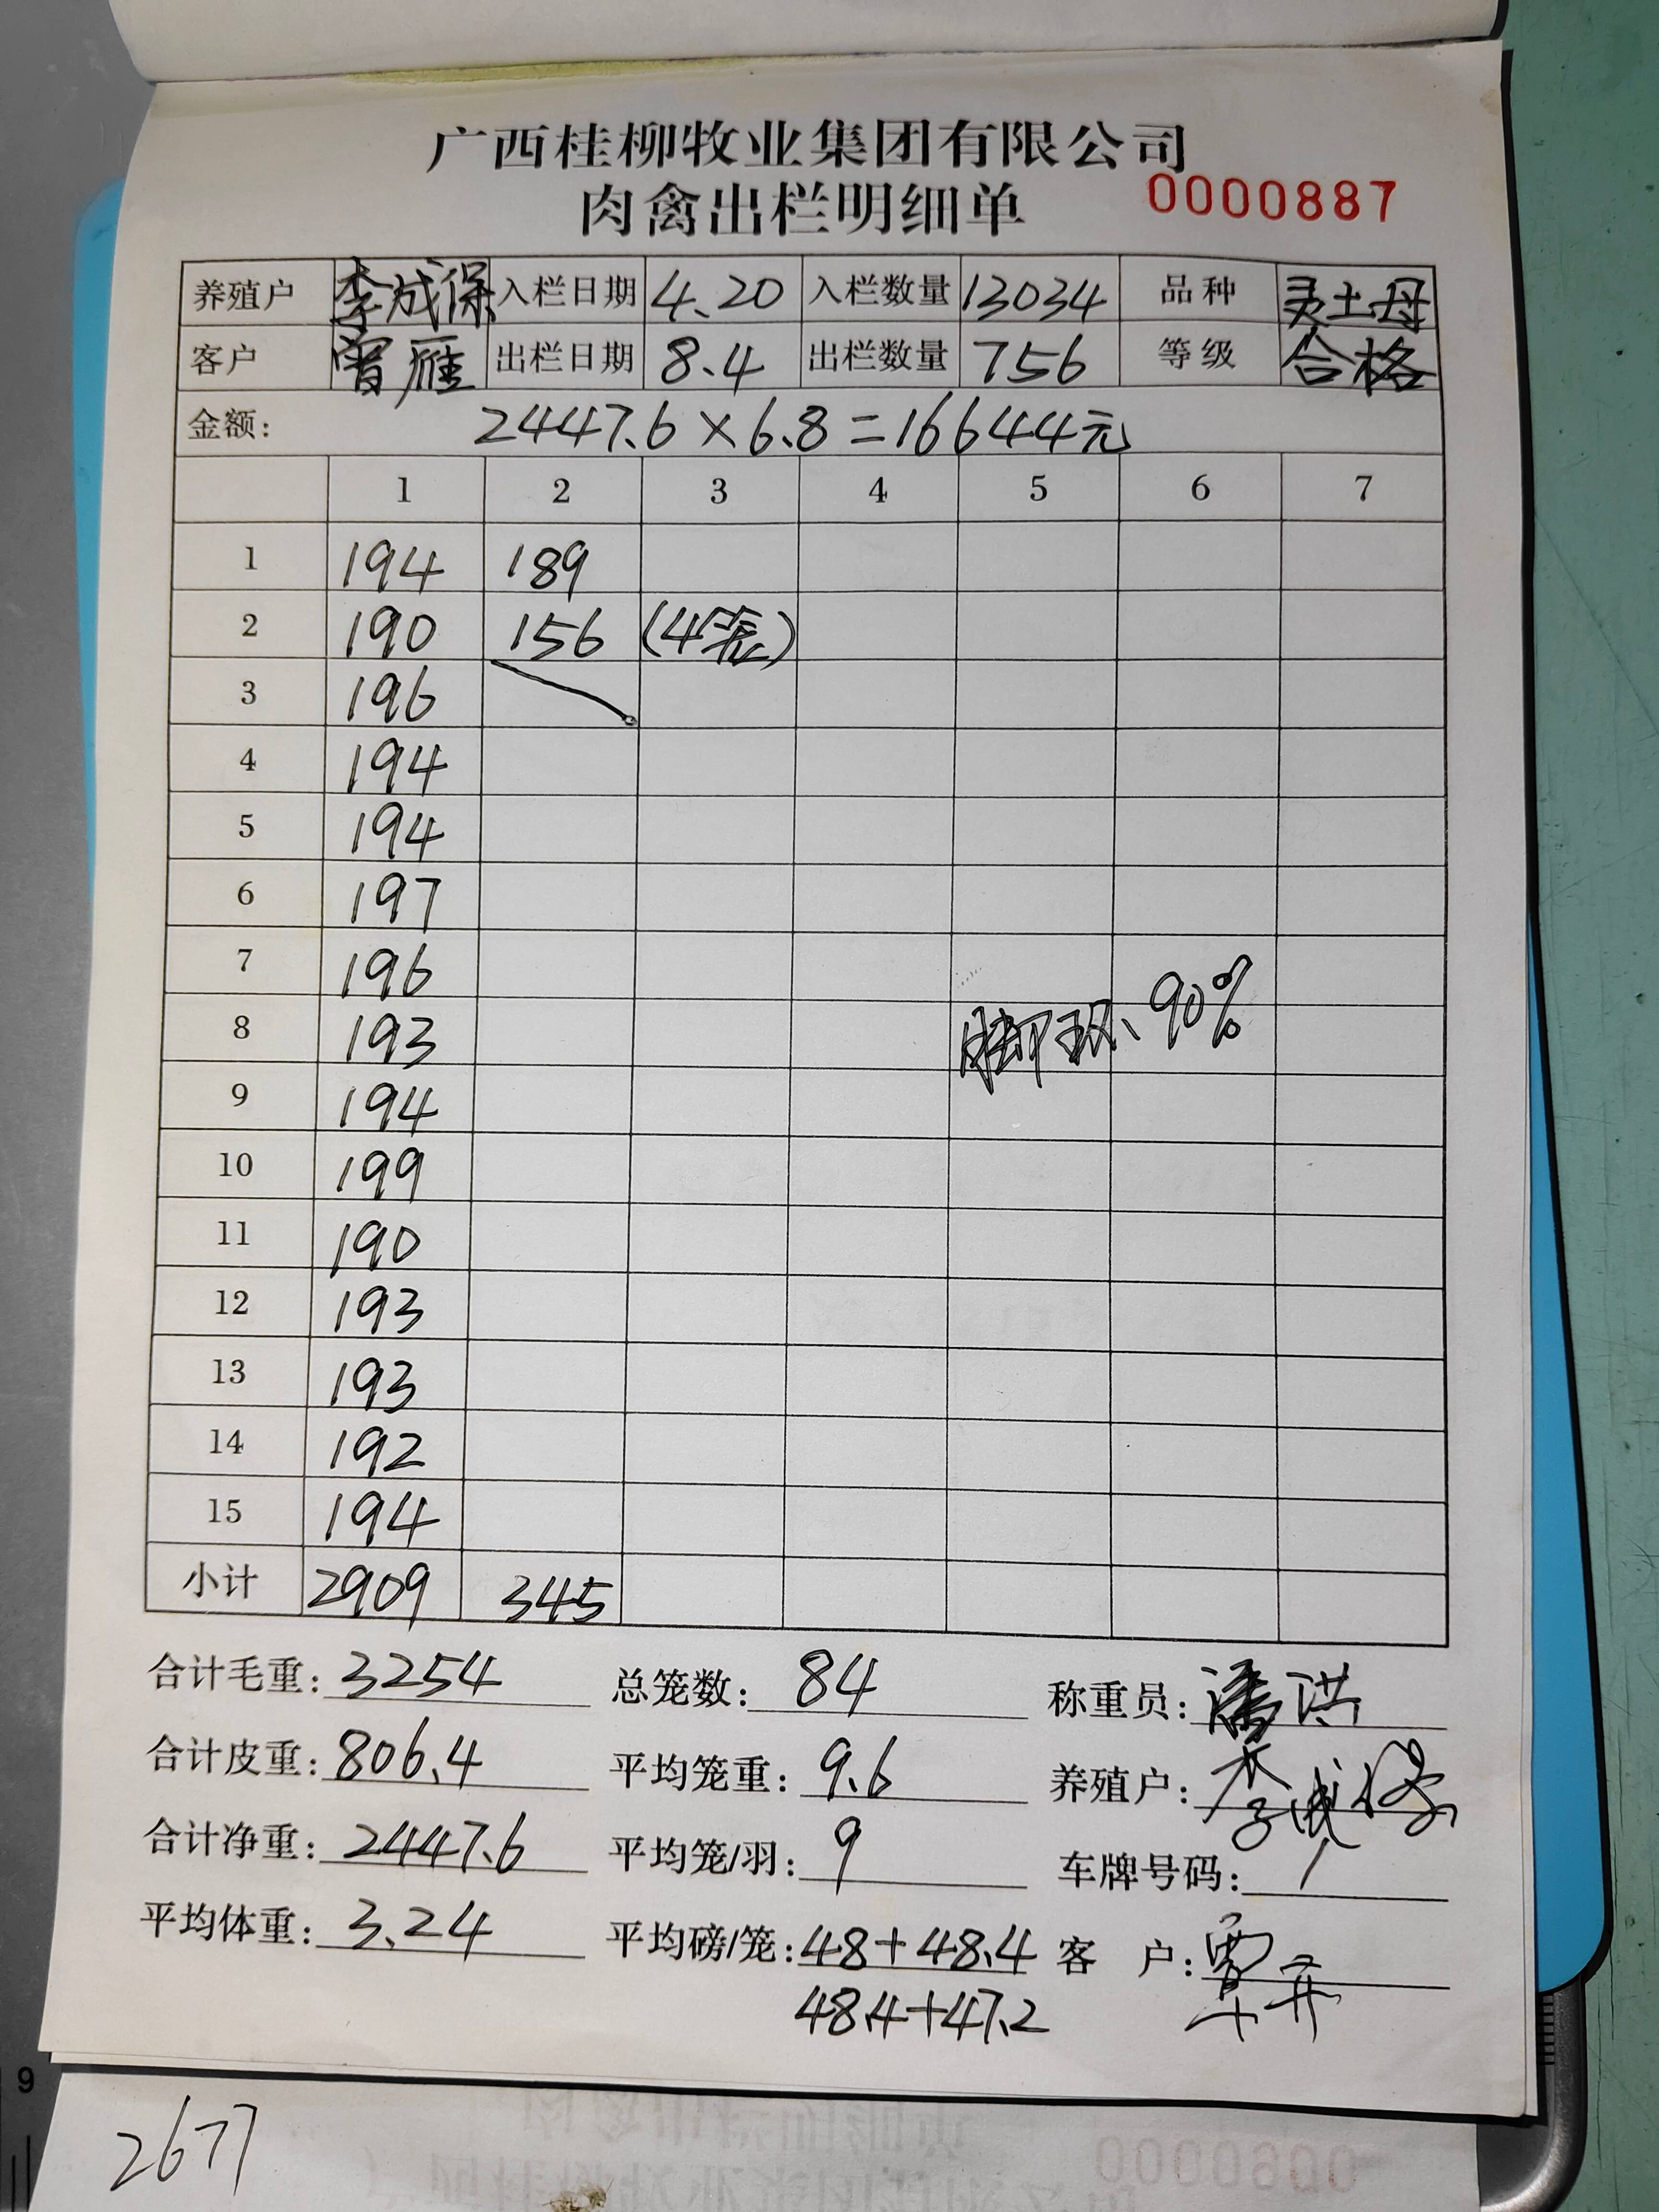 广西桂柳牧业集团有限公司
肉禽出栏明细单 0000887
养殖户 李成保 入栏日期 4.20 入栏数量 13034 品种 灵土母
客户 曾雁 出栏日期 8.4 出栏数量 756 等级 合格
金额: 2447.6×6.8=16644元
1 2 3 4 5 6 7
1 194 189
2 190 156 (4笼)
3 196
4 194
5 194
6 197
7 196
8 193 脚环、90%
9 194
10 199
11 190
12 193
13 193
14 192
15 194
小计 2909 345
合计毛重: 3254 总笼数: 84 称重员: 潘洪
合计皮重: 806.4 平均笼重: 9.6 养殖户: 李成保
合计净重: 2447.6 平均笼/羽: 9 车牌号码: /
平均体重: 3.24 平均磅/笼: 48+48.4 客 户: 覃
48.4+47.2
9
2677